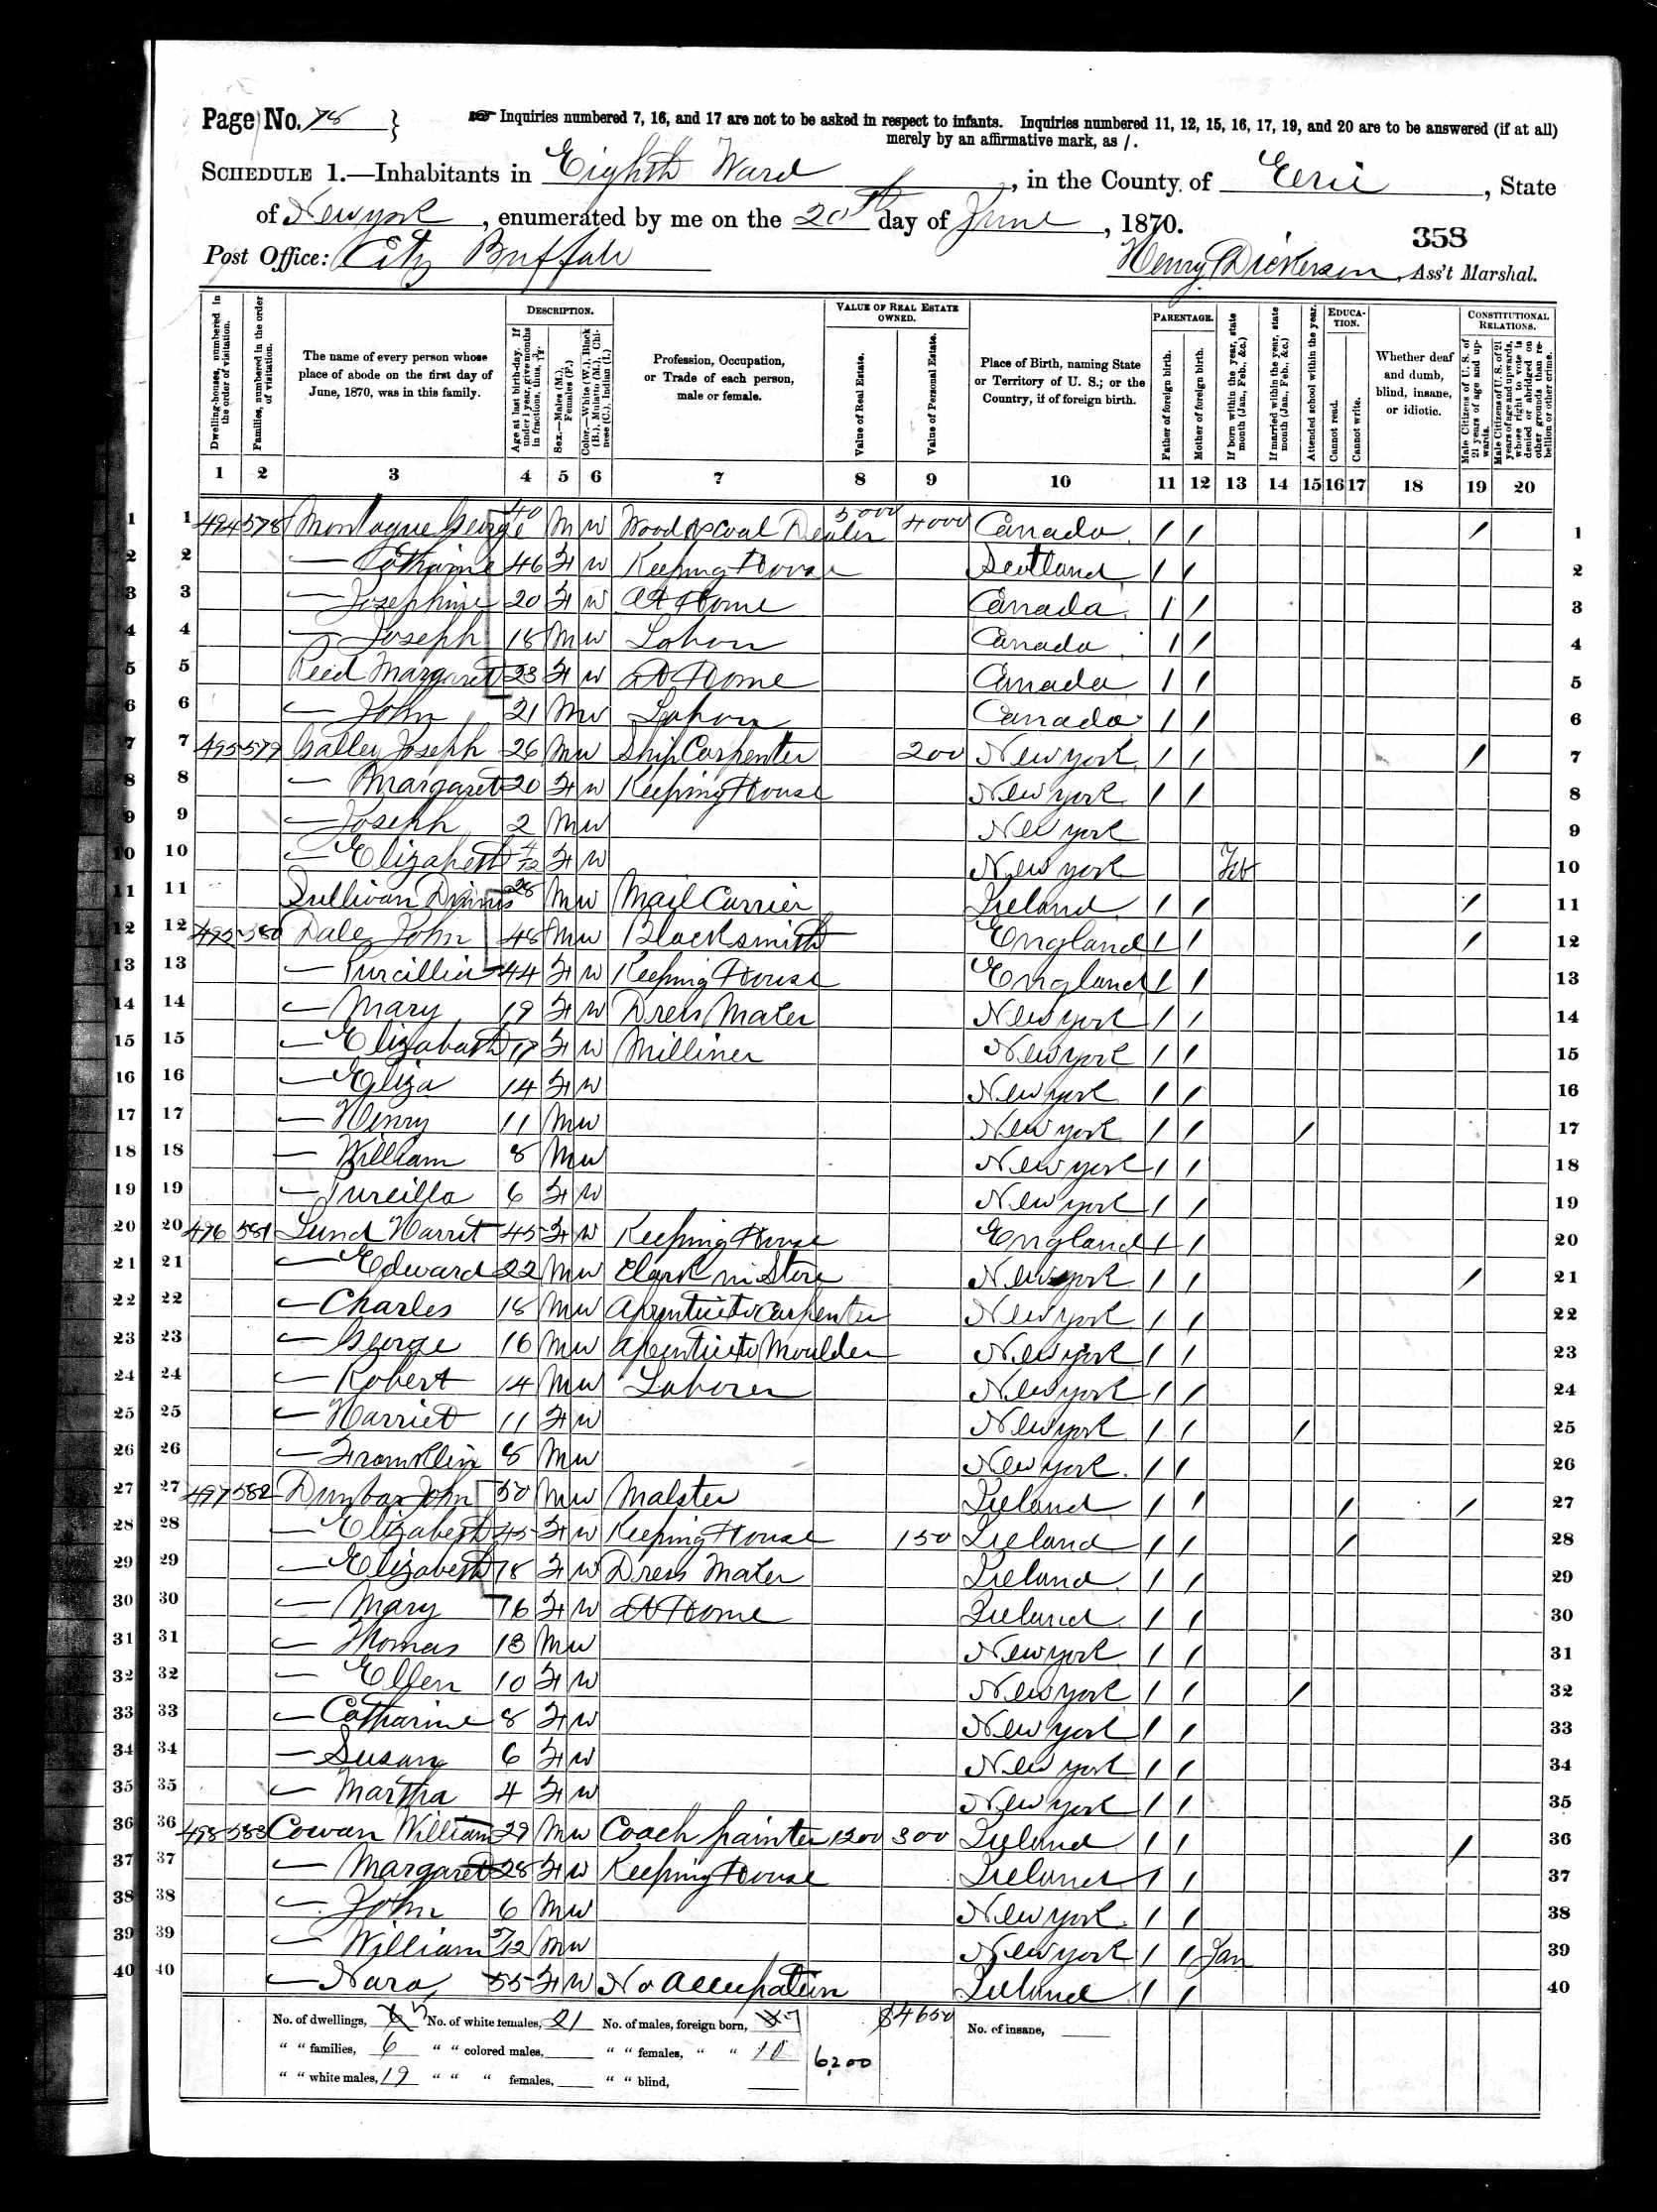 Page No. 78 } Inquiries numbered 7, 16, and 17 are not to be asked in respect to infants. Inquiries numbered 11, 12, 15, 16, 17, 19, and 20 are to be answered (if at all)
merely by an affirmative mark, as /.
SCHEDULE 1.—Inhabitants in Eighth Ward, in the County of Eerie, State
of New york, enumerated by me on the 20th day of June, 1870.
358
Post Office: City Buffalo Henry Dickerson, Ass't Marshal.
Dwelling-houses, numbered in the order of visitation.
Families, numbered in the order of visitation.
The name of every person whose place of abode on the first day of June, 1870, was in this family.
DESCRIPTION.
Age at last birth-day. If under 1 year, give months in fractions, thus, 3/12.
Sex.—Males (M.), Females (F.)
Color.—White (W.), Black (B.), Mulatto (M.), Chinese (C.), Indian (I.)
Profession, Occupation, or Trade of each person, male or female.
VALUE OF REAL ESTATE OWNED.
Value of Real Estate.
Value of Personal Estate.
Place of Birth, naming State or Territory of U. S.; or the Country, if of foreign birth.
PARENTAGE.
Father of foreign birth.
Mother of foreign birth.
If born within the year, state month (Jan., Feb., &c.)
If married within the year, state month (Jan., Feb., &c.)
Attended school within the year.
EDUCATION.
Cannot read.
Cannot write.
Whether deaf and dumb, blind, insane, or idiotic.
CONSTITUTIONAL RELATIONS.
Male Citizens of U. S. of 21 years of age and upwards.
Male Citizens of U. S. of 21 years of age and upwards, whose right to vote is denied or abridged on other grounds than rebellion or other crime.
1 2 3 4 5 6 7 8 9 10 11 12 13 14 15 16 17 18 19 20
1 494 578 Montague George 40 M W Wood & Coal Dealer 5000 4000 Canada / / / 1
2 — Catharine 46 F W Keeping House Scotland / / 2
3 — Josephine 20 F W At Home Canada / / 3
4 — Joseph 18 M W Labor Canada / / 4
5 Reed Margaret 23 F W At Home Canada / / 5
6 — John 21 M W Labor Canada / / 6
7 495 579 Galley Joseph 26 M W Ship Carpenter 200 New york / / / 7
8 — Margaret 20 F W Keeping House New york / / 8
9 — Joseph 2 M W New york 9
10 — Elizabeth 4/12 F W New york Feb 10
11 Sullivan Dinnis 28 M W Mail Carrier Ireland / / / 11
12 495 580 Daley John 48 M W Blacksmith England / / / 12
13 — Purcillia 44 F W Keeping House England / / 13
14 — Mary 19 F W Dress Maker New york / / 14
15 — Elizabeth 17 F W Milliner New york / / 15
16 — Eliza 14 F W New york / / 16
17 — Henry 11 M W New york / / / 17
18 — William 8 M W New york / / 18
19 — Purcilla 6 F W New york / / 19
20 496 581 Lund Harriet 45 F W Keeping House England / / 20
21 — Edward 22 M W Clark in Store New york / / / 21
22 — Charles 18 M W Aprentice to Carpenter New york / / 22
23 — George 16 M W Aprentice to Moulder New york / / 23
24 — Robert 14 M W Laborer New york / / 24
25 — Harriet 11 F W New york / / / 25
26 — Franklin 8 M W New york / / 26
27 497 582 Dunbar John 50 M W Malster Ireland / / / / 27
28 — Elizabeth 45 F W Keeping House 150 Ireland / / / 28
29 — Elizabeth 18 F W Dress Maker Ireland / / 29
30 — Mary 16 F W At Home Ireland / / 30
31 — Thomas 13 M W New york / / 31
32 — Ellen 10 F W New york / / / 32
33 — Catharine 8 F W New york / / 33
34 — Susan 6 F W New york / / 34
35 — Martha 4 F W New york / / 35
36 498 583 Cowan William 29 M W Coach painter 1200 300 Ireland / / / 36
37 — Margaret 28 F W Keeping House Ireland / / 37
38 — John 6 M W New york / / 38
39 — William 5/12 M W New york / / Jan 39
40 — Nora 55 F W No Accupation Ireland / / 40
No. of dwellings, 5 No. of white females, 21 No. of males, foreign born, 7 $4650 No. of insane,
" " families, 6 " " colored males, " " females, " " 10 6,200
" " white males, 19 " " " females, " " blind,